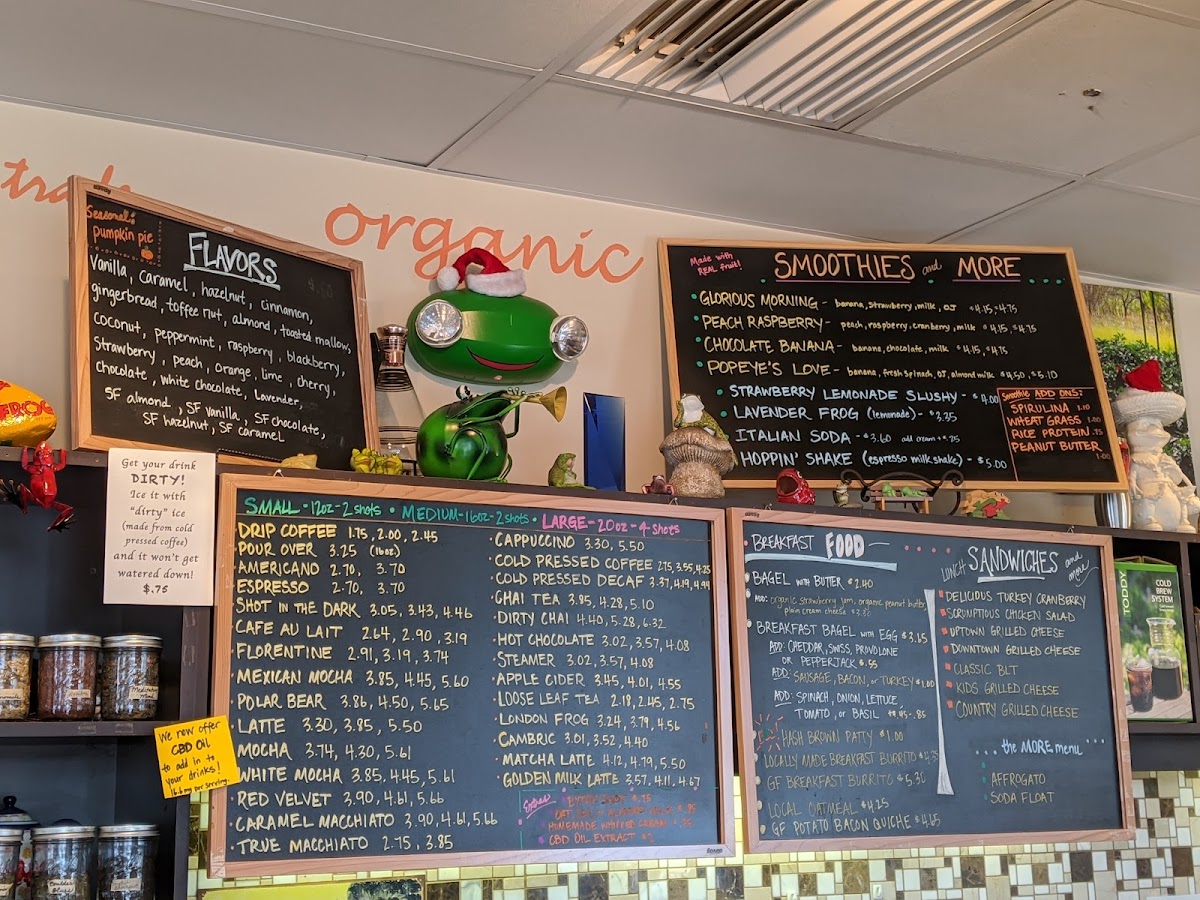 organic
Seasonal:
pumpkin pie
FLAVORS
Vanilla, Caramel, hazelnut, cinnamon,
gingerbread, toffee nut, almond, toasted mallow,
Coconut, peppermint, raspberry, blackberry,
Strawberry, peach, orange, lime, cherry,
Chocolate, white chocolate, Lavender,
SF almond, SF vanilla, SF chocolate,
SF hazelnut, SF caramel
Made with
REAL fruit!
SMOOTHIES and MORE
GLORIOUS MORNING - banana, strawberry, milk, OJ $4.15, 4.75
PEACH RASPBERRY - peach, raspberry, cranberry, milk $4.15, 4.75
CHOCOLATE BANANA - banana, chocolate, milk $4.15, 4.75
POPEYE'S LOVE - banana, fresh spinach, OJ, almond milk $4.50, 5.10
STRAWBERRY LEMONADE SLUSHY - $4.00
LAVENDER FROG (lemonade) - $3.35
ITALIAN SODA - $3.60 add cream + $.75
HOPPIN' SHAKE (espresso milkshake) - $5.00
Smoothie ADD ONS:
SPIRULINA 1.10
WHEAT GRASS 1.00
RICE PROTEIN .75
PEANUT BUTTER
1.00
FROG
Get your drink
DIRTY!
Ice it with
"dirty" ice
(made from cold
pressed coffee)
and it won't get
watered down!
$.75
We now offer
CBD Oil
to add in to
your drinks!
16.6mg per serving
SMALL - 12oz - 2 shots • MEDIUM - 16oz - 2 shots • LARGE - 20oz - 4 shots
DRIP COFFEE 1.75, 2.00, 2.45
POUR OVER 3.25 (16oz)
AMERICANO 2.70, 3.70
ESPRESSO 2.70, 3.70
SHOT IN THE DARK 3.05, 3.43, 4.46
CAFE AU LAIT 2.64, 2.90, 3.19
FLORENTINE 2.91, 3.19, 3.74
MEXICAN MOCHA 3.85, 4.45, 5.60
POLAR BEAR 3.86, 4.50, 5.65
LATTE 3.30, 3.85, 5.50
MOCHA 3.74, 4.30, 5.61
WHITE MOCHA 3.85, 4.45, 5.61
RED VELVET 3.90, 4.61, 5.66
CARAMEL MACCHIATO 3.90, 4.61, 5.66
TRUE MACCHIATO 2.75, 3.85
CAPPUCCINO 3.30, 5.50
COLD PRESSED COFFEE 2.75, 3.55, 4.25
COLD PRESSED DECAF 3.37, 4.19, 4.99
CHAI TEA 3.85, 4.28, 5.10
DIRTY CHAI 4.40, 5.28, 6.32
HOT CHOCOLATE 3.02, 3.57, 4.08
STEAMER 3.02, 3.57, 4.08
APPLE CIDER 3.45, 4.01, 4.55
LOOSE LEAF TEA 2.18, 2.45, 2.75
LONDON FROG 3.24, 3.79, 4.56
CAMBRIC 3.01, 3.52, 4.40
MATCHA LATTE 4.12, 4.79, 5.50
GOLDEN MILK LATTE 3.57, 4.11, 4.67
Extras
HOMEMADE WHIPPED CREAM
CBD OIL EXTRACT
BREAKFAST FOOD
BAGEL WITH BUTTER $2.40
ADD: organic strawberry jam, organic peanut butter,
plain cream cheese
BREAKFAST BAGEL with EGG $3.65
ADD: CHEDDAR, SWISS, PROVOLONE
OR PEPPERJACK $.55
ADD: SAUSAGE, BACON, or TURKEY $1.00
ADD: SPINACH, ONION, LETTUCE,
TOMATO, or BASIL
HASH BROWN PATTY $1.00
LOCALLY MADE BREAKFAST BURRITO $4.35
GF BREAKFAST BURRITO $5.30
LOCAL OATMEAL $4.25
GF POTATO BACON QUICHE $4.65
LUNCH SANDWICHES and more
DELICIOUS TURKEY CRANBERRY
SCRUMPTIOUS CHICKEN SALAD
UPTOWN GRILLED CHEESE
DOWNTOWN GRILLED CHEESE
CLASSIC BLT
KIDS GRILLED CHEESE
COUNTRY GRILLED CHEESE
... the MORE menu ...
AFFROGATO
SODA FLOAT
TODDY
COLD
BREW
SYSTEM